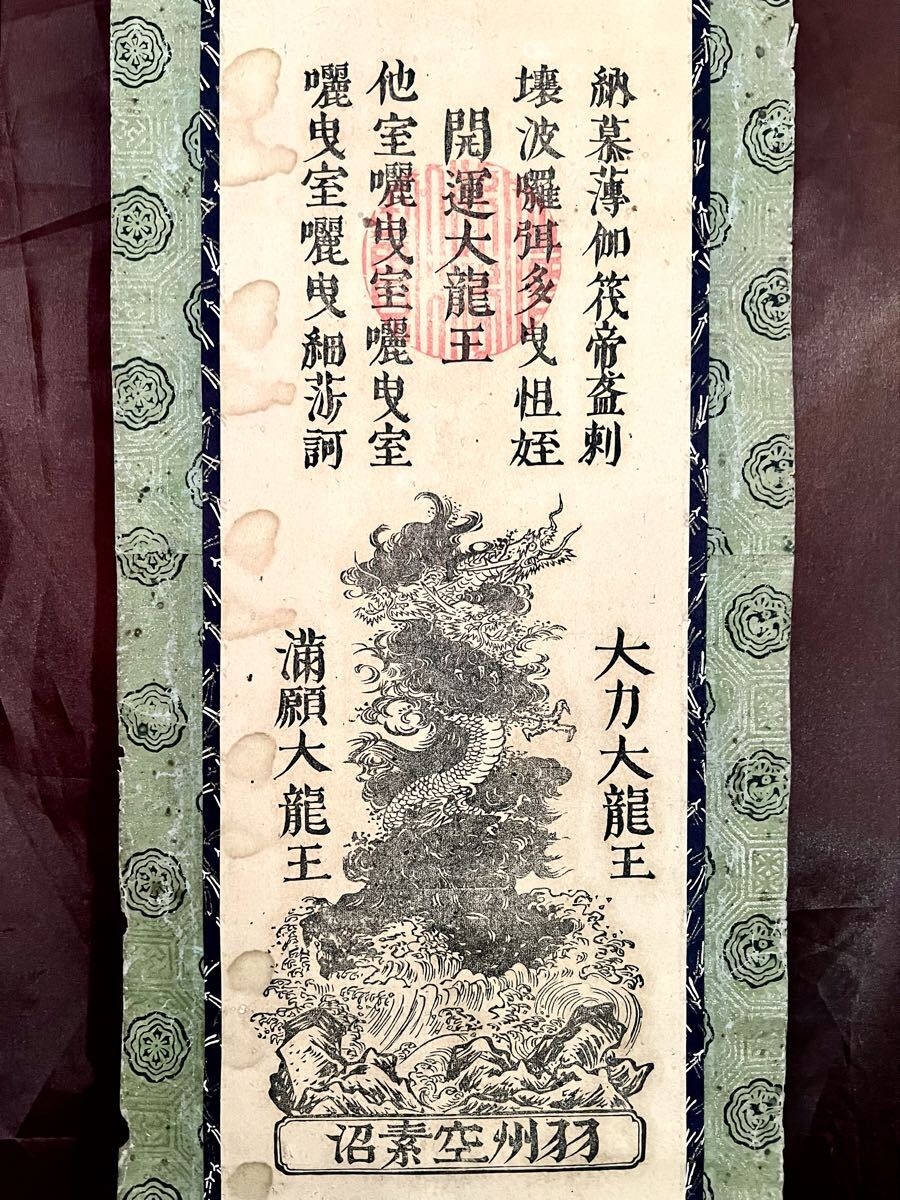 納慕薄伽筏帝盔刺
壤波囉弭多曳怚姪
開運大龍王
他室囇曳室囇曳室
囇曳室囇曳細莎訶
大力大龍王
滿願大龍王
羽州空素沼